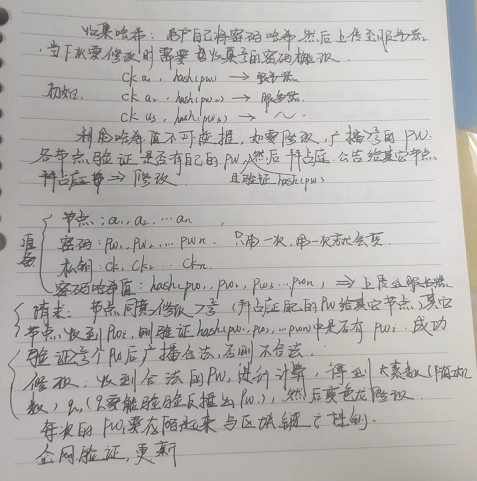 收集哈希：用户自己将密码哈希然后上传至服务器.
当下次要修改时需要收集了的密码概改.
初始: ck a₁, hash(pw₁) → 服务器.
ck a₂, hash(pw₂) → 服务器.
ck a₃, hash(pwₙ) → ～.
利用哈希值不可逆推, 如要修改, 广播>⅔的PW.
各节点验证是否有自己的PW, 然后 公告给其它节点.
⟹ 修改. 且验证hash(pw)
准备 节点: a₁, a₂, … aₙ,
密码: pw₁, pw₂, … pwₙ. 只用一次, 用一次就会变.
私钥: ck₁, ck₂ … ckₙ.
密码哈希值: hash(pw₁, pw₁, pw₂ … pwₙ), ⟹ 上传至服务器.
请求: 节点同意修改>⅔ (自己的PW给其它节点), 其它
节点收到PWᵢ, 则验证hash(pw₁, pw₂, … pwₙ)中是否有pwᵢ. 成功
验证 个PW后广播合法, 否则不合法.
修改: 收到合法的PW, 进行计算, 得到大素数(随机
数), (只要能验验反推出PW.), 然后变色龙修改.
每次的PW要存 起来与区块链
全网验证, 更新